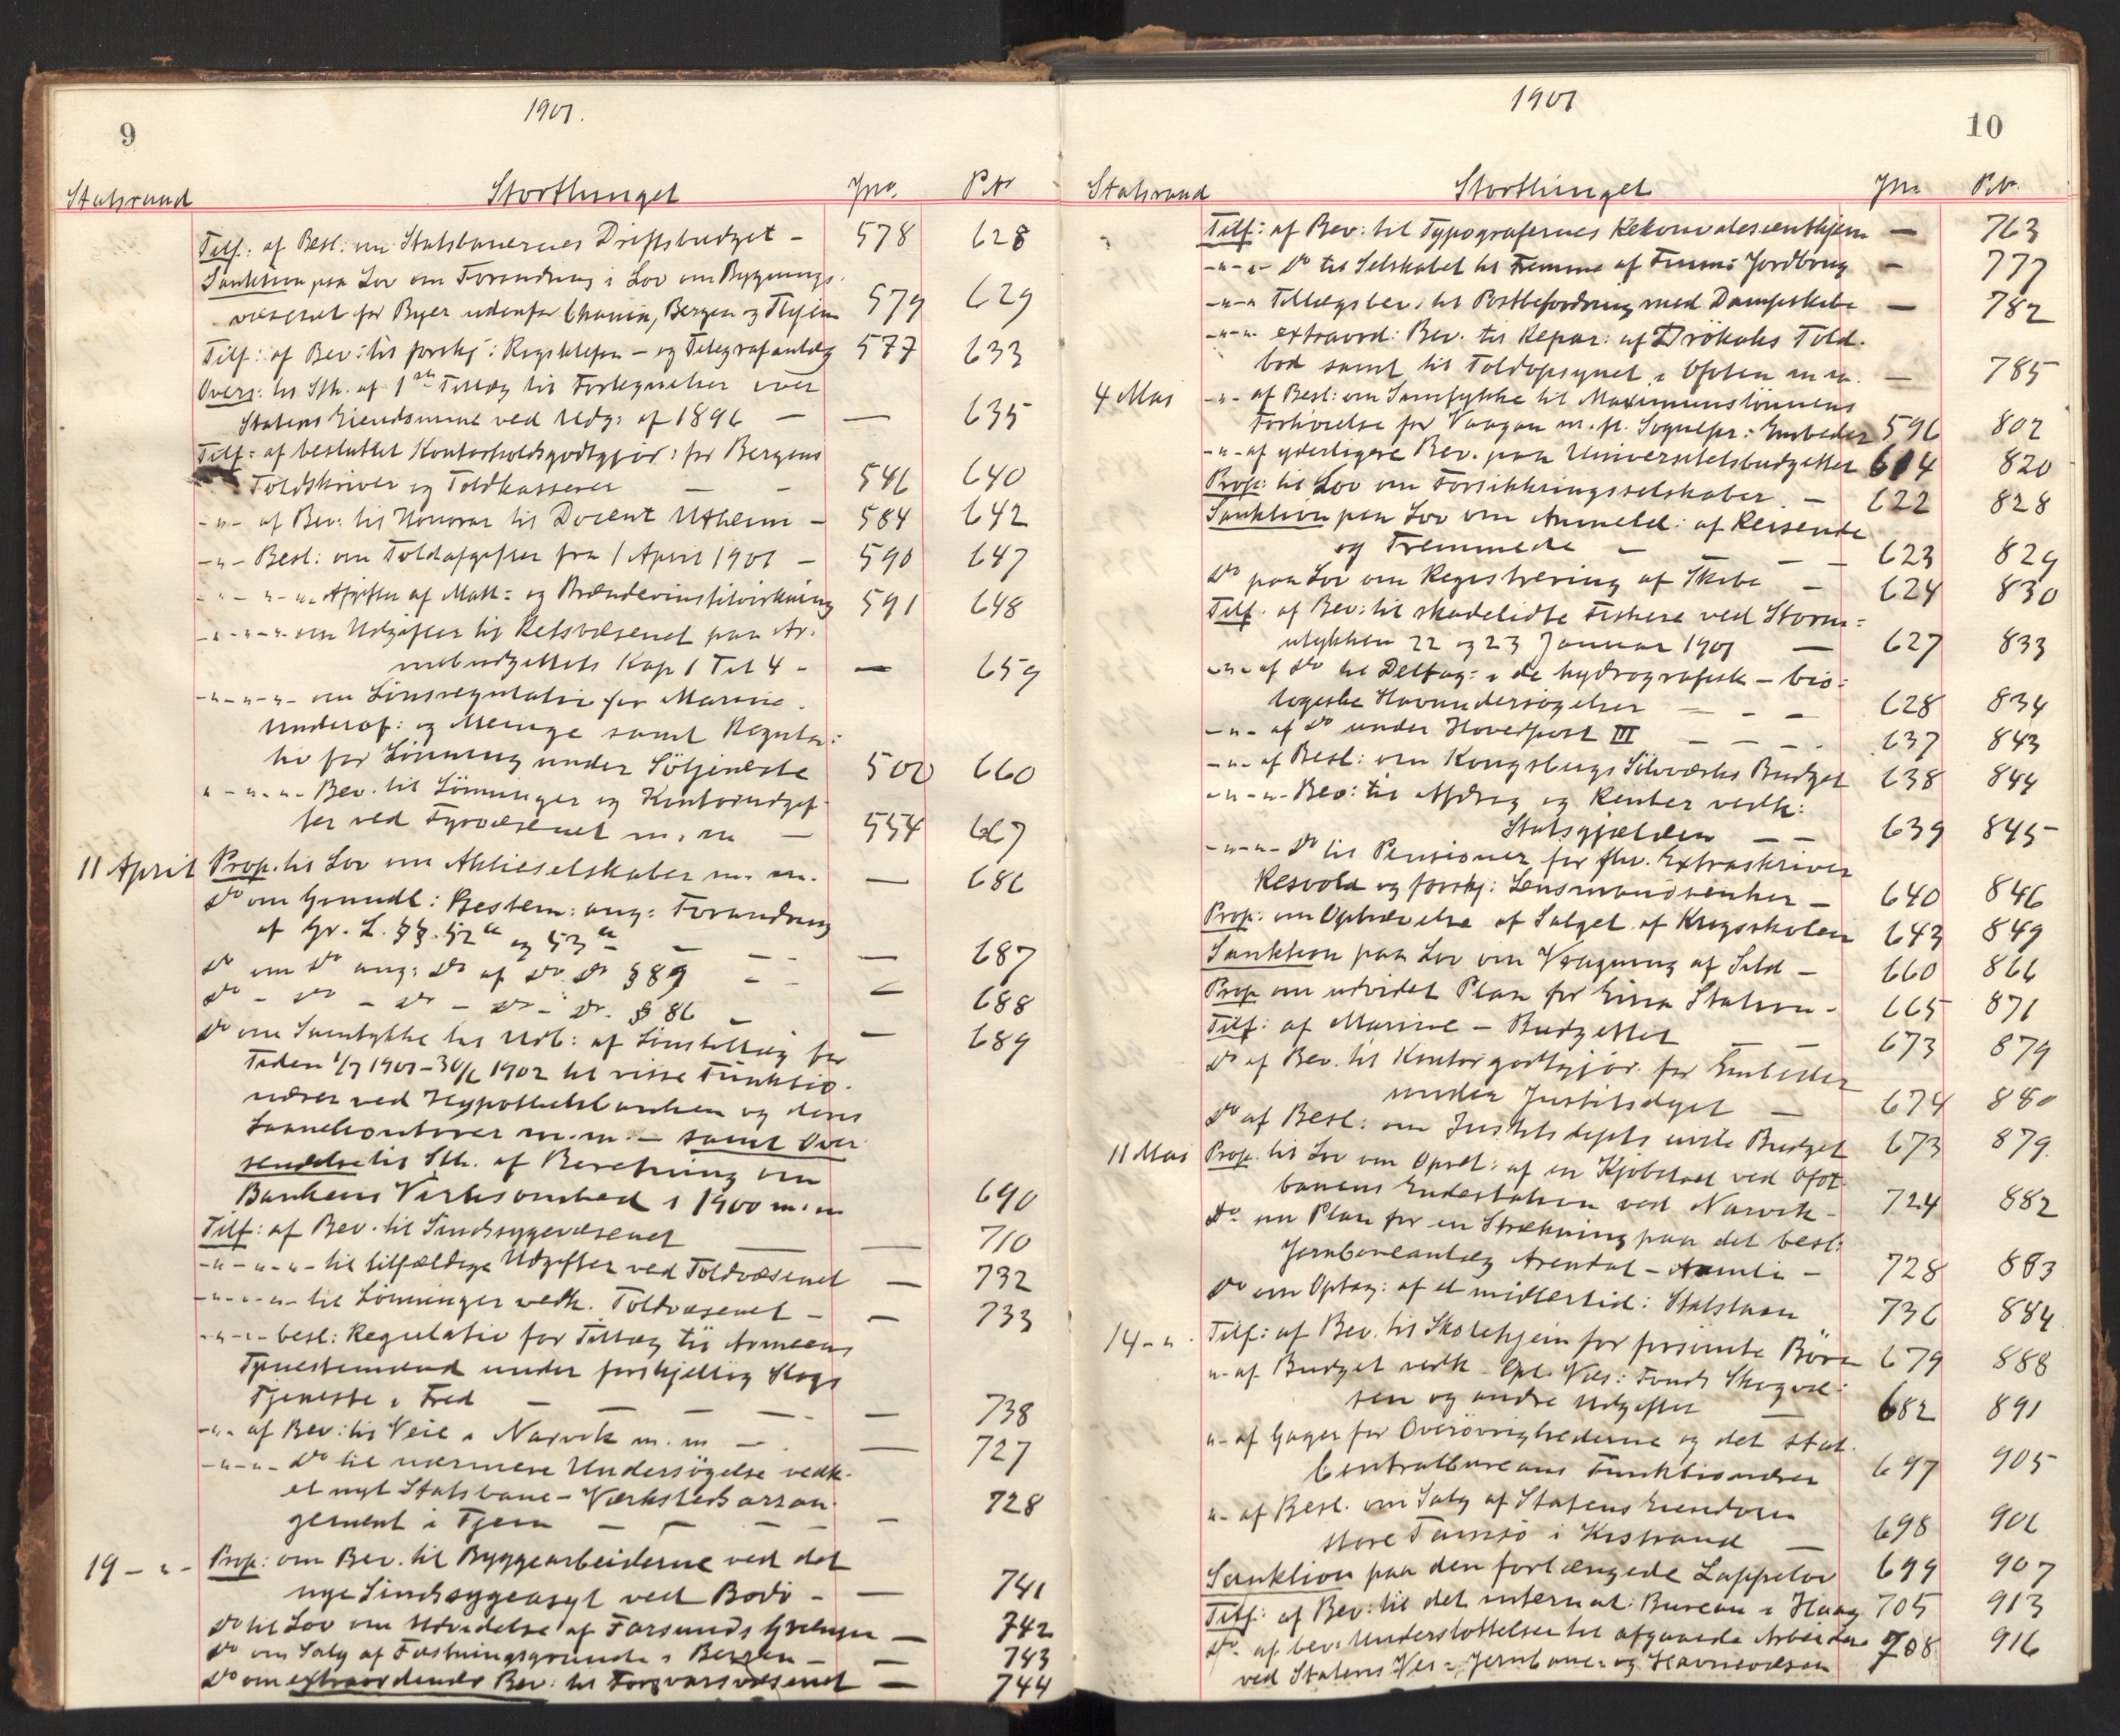 9
1901.
Statsraad Storthinget Jno. P.No
Tilf: af Besl: om Statsbanernes Driftsbudget - 578 628
Sanktion paa Lov om Forandring i Lov om Bygnings
væsenet for Byer udenfor Chania, Bergen og Thjem 579 629
Tilf: af Bev: til forskj: Rigstelefon - og Telegrafanlæg 577 633
Overs: til Sth. af 1ste Tillæg til Fortegnelse over
Statens Eiendomme ved Udg: af 1896 - — 635
Tilf: af besluttet Kontorholdsgodtgjør: for Bergens
Toldskriver og Toldkasserer — - 546 640
-"- af Bev: til Honorar til Docent Utheim - 584 642
-"- Besl: om Toldafgifter fra 1 April 1901 - 590 647
-"- "- "- Afgifter af Malt= og Brændevinstilvirkning 591 648
-"-"-"- om Udgifter til Retsvæsenet paa Ar.
mebudgettets Kap 1 Tit 4 - — 659
-"-"-"- om Lønsregulativ for Marine.
Underof: og Menige samt Regula:
tiv for Lønning under Søtjeneste 500 660
"-"-"- Bev. til Lønninger og Kontorudgif
ter ved Fyrvæsenet m. m — 554 667
11 April Prop. til Lov om Aktieselskaber m. m. — 686
Do om Grundl: Bestem: ang: Forandring
af Gr. L. §§. 52 a og 53 a - — 687
Do om Do ang: Do af Do Do § 89 — 688
Do - Do - Do - Do - Do. § 86 - — 689
Do om Samtykke til Udb: af Lønstillæg for
Tiden 1/7 1901 - 30/6 1902 til visse Funktio.
nærer ved Hypothekbanken og dens
Laanekontorer m.m. - samt Over
sendelse til Sth. af Beretning om
Bankens Virksomhed i 1900 m. m 690
Tilf: af Bev. til Sindssygevæsenet — — 710
-"-"-"- til tilfældige Udgifter ved Toldvæsenet — 732
-"-"-"- til Lønninger vedk. Toldvæsenet - — 733
-"-"- besl: Regulativ for Tillæg til Armeens
Tjenestemænd under forskjellig Slags
Tjeneste i Fred - — — — 738
-"- af Bev: til Veie i Narvik m. m — — 727
-"-"- Do til nærmere Undersøgelse vedk.
et nyt Statsbane - Værkstedsarran
gement i Tjem — — — — 728
19 - " - Prop: om Bev. til Byggearbeiderne ved det
nye Sindssygeasyl ved Bodø - — 741
Do til Lov om Udvidelse af Farsunds Grænser — 742
Do om Salg af Fæstningsgrunde i Bergen - — 743
Do om extraordinær Bev: til Forsvarsvæsenet — 744
1901
10
Statsraad Storthinget Jno P.No.
Tilf: af Bev: til Typografernes Rekonvalescenthjem — 763
-"-"- Do til Selskabet til Fremme af Finms Jordbrug — 777
-"-"- Tillægsbev: til Postbefordring med Dampskibe — 782
-"-"- extraord: Bev. til Repar: af Drøbaks Told.
bod samt til Toldopsynet i Ofoten m. m. — 785
4 Mai -"- af Besl: om Samtykke til Maximumslønnens
Forhøielse for Vaagan m. fl. Sognepr: Embeder 596 802
-"- af yderligere Bev. paa Universitetsbudgettet 614 820
Prop: til Lov om Forsikkringsselskaber - 622 828
Sanktion paa Lov om Anmeld: af Reisende
og Fremmede — — - 623 829
Do paa Lov om Registrering af Skibe - 624 830
Tilf. af Bev: til skadelidte Fiskere ved Storm=
ulykken 22 og 23 Januar 1901 — 627 833
-"- af Do til Deltag: i de hydrografisk - bio:
logiske Havundersøgelser — - - 628 834
-"- af Do under Hovedpost III — - - - 637 843
-"- af Besl: om Kongsbergs Sølvværks Budget 638 844
-"-"- Bev: til Afdrag og Renter vedk:
Statsgjælden — — 639 845
-"-"- Do til Pensioner for fhv. Extraskriver
Resvold og forskj: Lensmandsenker - 640 846
Prop: om Ophævelse af Salget af Krigsskolen 643 849
Sanktion paa Lov om Vragning af Sild - 660 866
Prop om udvidet Plan for Eina Station - 665 871
Tilf: af Marine - Budgettet — — 673 879
Do af Bev. til Kontorgodtgjør. for Embeder
under Justitsdept — 674 880
Do af Besl: om Justitsdepts civile Budget 673 879.
11 Mai Prop. til Lov om Opret: af en Kjøbstad ved Ofot
banens Endestation ved Narvik - 724 882
Do om Plan for en Strækning paa det besl:
Jernbaneanlæg Arendal - Aamli - 728 883
Do om Optag: af et midlertid: Statslaan 736 884
14 - " . Tilf: af Bev. til Skolehjem for forsømte Børn 679 888
"- af Budget vedk. Opl. Væs: Fonds Skogvæ:
sen og andre Udgifter — 682 891
"- af Gager for Overøvrighederne og det stat.
Centralbureaus Funktionærer 697 905
"- af Besl. om Salg af Statens Eiendom
store Tamsø i Kistrand — 698 906
Sanktion paa den forlængede Lappelov 699 907
Tilf: af Bev: til det internat: Bureau i Haag 705 913
Do. af bev: Understøttelser til afgaaede Arbeidere 708 916
ved Statens Vei=, Jernbane= og Havnevæsen